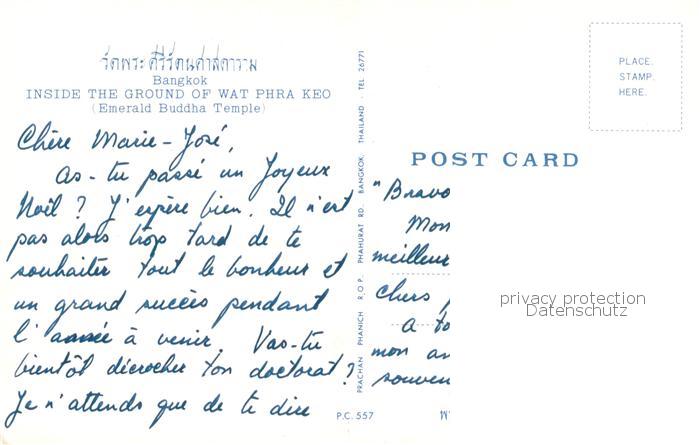 วัดพระศรีรัตนศาสดาราม
Bangkok
INSIDE THE GROUND OF WAT PHRA KEO
(Emerald Buddha Temple)
Chère Marie-José,
As-tu passé un Joyeux
Noël ? J'espère bien. Il n'est
pas alors trop tard de te
souhaiter tout le bonheur et
un grand succès pendant
l'année à venir. Vas-tu
bientôt décrocher ton doctorat ?
Je n'attends que de te dire
PRACHAN PHANICH R.O.P. PHAHURAT RD. BANGKOK, THAILAND - TEL 26771
P.C. 557
PLACE.
STAMP.
HERE.
POST CARD
"Bravo
Mon
meilleur
Chers
A to
mon an
souven
privacy protection
Datenschutz